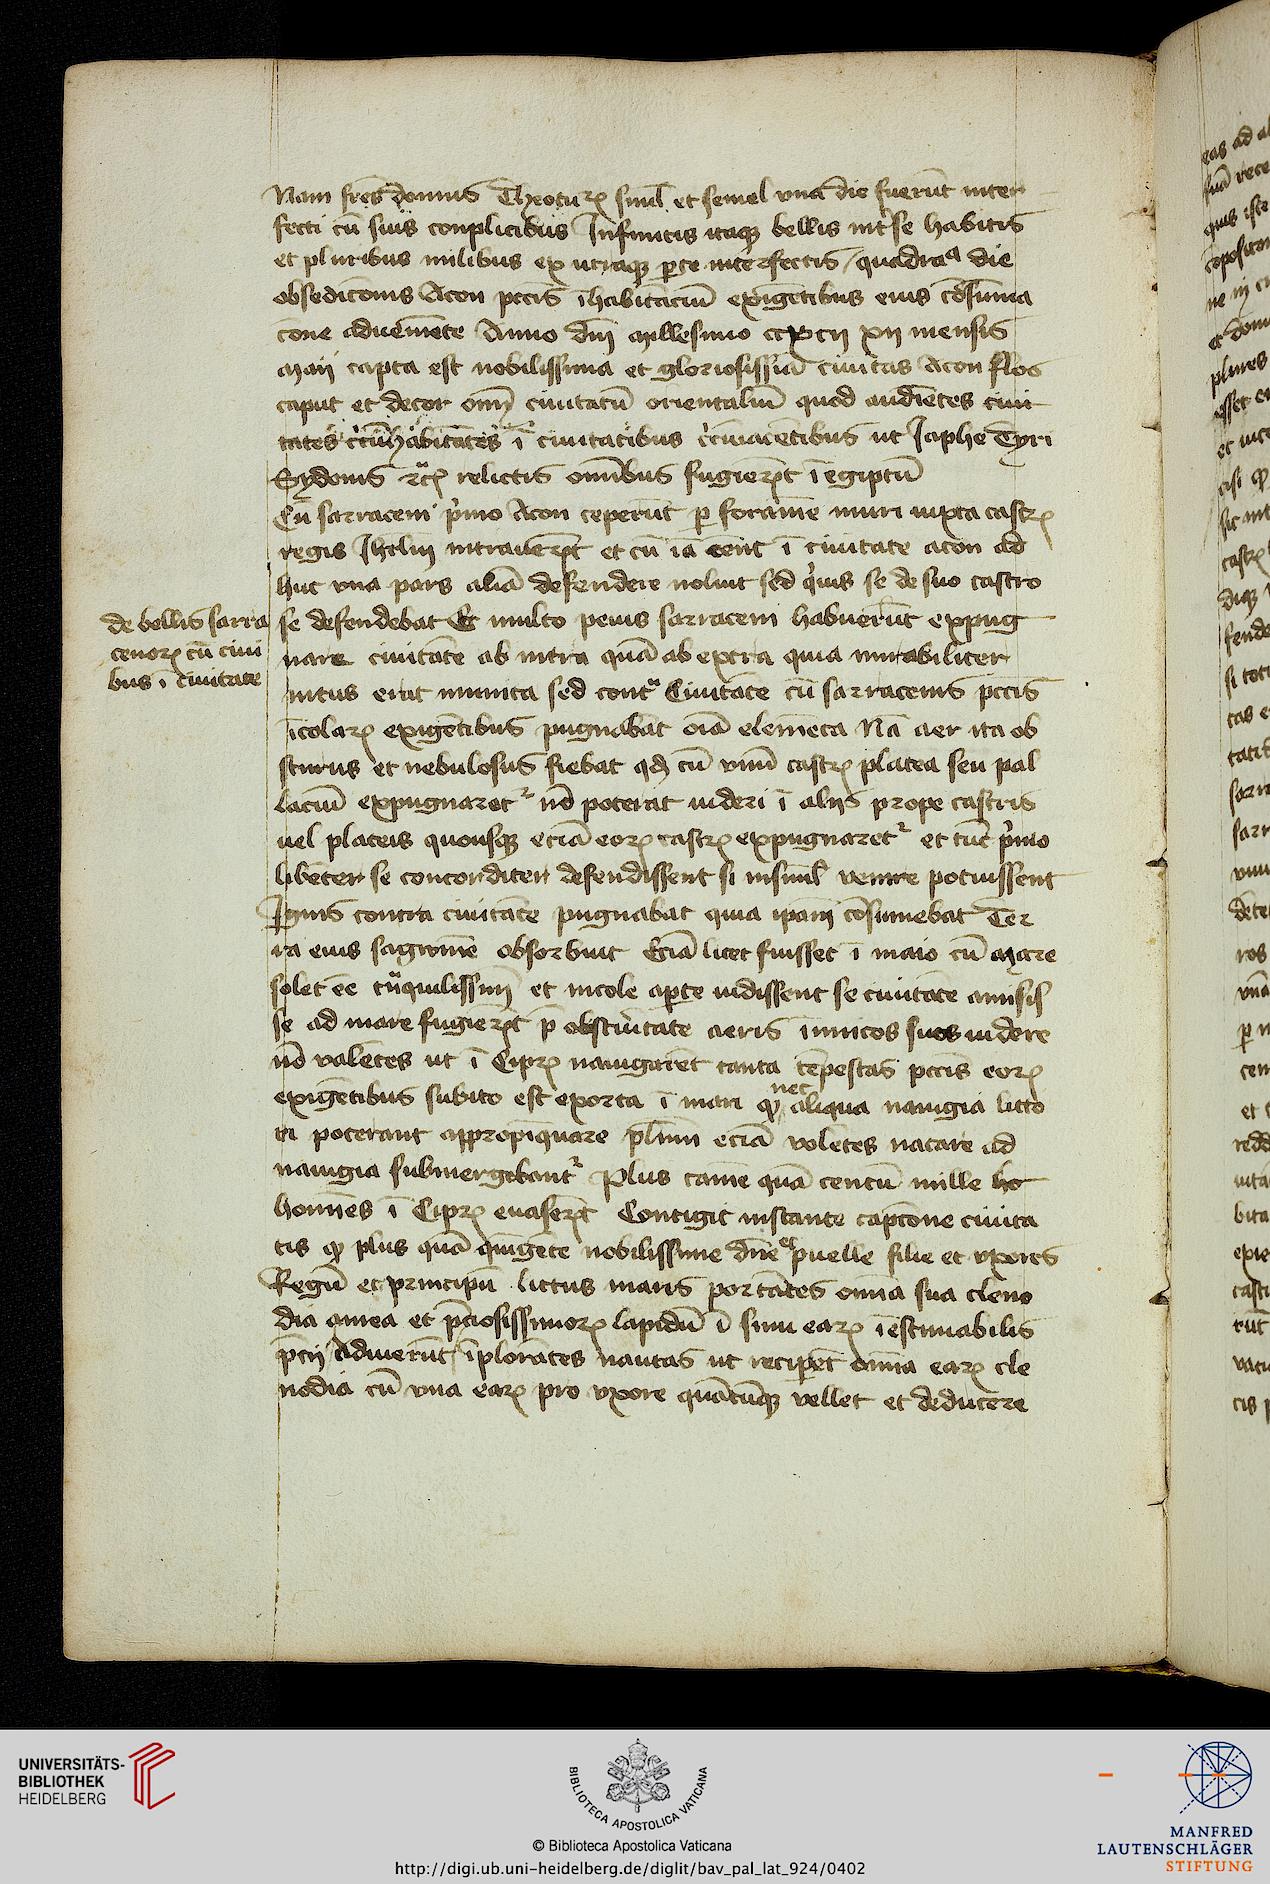 Nam fr̄es domus Theoturꝝ simł et semel vna die fuerūt inter
fecti cū suis conplicibus Infinitis itaqꝫ bellis int̉ se habitis
et pluribus milibus ex utraqꝫ ꝑte interfectis / quadraᵃ die
obsedicōnis Acon pccīs īhabitāciū exigētibus eius cōsūma
cōne adueniēte Anno dn̄i millesimo ccxcii xii mensis
maii capta est nobilissima et gloriosissīa ciuitas Acon flos
caput et decor om̄i ciuitatū orientaliū quod audiētes ciui
tates habitātes ī ciuitatibus c̉cūiacētibus ut Japhe Tyri
Sydonis ⁊c̄ relictis omībus fugierūt ī egiptū
Cū sarraceni p̉mo Acon ceperūt ꝑ foramē muri iuxta castꝝ
regis Jhrl̄m intrauerūt et cū iā eēnt ī ciuitate acon ad
huc vna pars aliā defendere noluit sed q̉uis se de suo castro
se defendebat Et multo peius sarraceni habuerūt expug
nare ciuitatē ab intra quā ab extra quia mirabiliter
intus erat munita sed contᵃ Ciuitatē cū sarracenis pccīs
īcolarꝝ exigētibus pugnabāt oīa elemēta Nā aer ita ob
scurus et nebulosus fiebat qd̄ cū vnū castꝝ platea seu pal
laciū expugnaretᵘ nō poterat uideri ī aliis prope castris
uel plateis quousqꝫ eciā eorꝝ castꝝ expugnaretᵘ et tūc p̉mo
libēter se concorditer defendissent si insimł venire potuissent
Ignis contra ciuitatē pugnabat quia ipam̄ cōsumebat Ter
ra eius sagwinē obsorbuit Eciā licet fuisset ī maio cū mare
solet eē tᵃnquilissim̄ et incole aꝑte uidissent se ciuitatē amisis
se ad mare fugierūt p̄ obscuritatē aeris īimicos suos uidere
nō valētes ut ī Ciprꝝ nauigarēt tanta tēpestas pccīs eorꝝ
exigētibus subito est exorta ī mari qꝫ nec aliqua nauigia litto
ri poterant appropīquare pl̄imi eciā volētes natare ad
nauigia submergebantᵘ Plus tamē quā centū mille ho
homīes ī Ciprꝝ euaserūt Contigit instante captōne ciuita
tis qꝫ plus quā quīgēte nobilissime dn̄e et puelle filie et vxores
Regū et principū littus maris portātes omīa sua cleno
dia aurea et p̄ciosissimorꝝ lapidū ī sinu earꝝ īestimabilis
p̄cii Adiuerūt / īplorātes nautas ut reciꝑet omīa earꝝ cle
nodia cū vna earꝝ pro vxore quācūqꝫ vellet et deducere
de bellis sarra
cenorꝝ cū ciui
bus ī ciuitate
UNIVERSITÄTS-
BIBLIOTHEK
HEIDELBERG
BIBLIOTECA APOSTOLICA VATICANA
© Biblioteca Apostolica Vaticana
http://digi.ub.uni-heidelberg.de/diglit/bav_pal_lat_924/0402
MANFRED
LAUTENSCHLÄGER
STIFTUNG